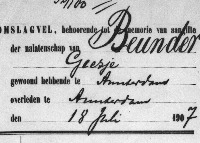 OMSLAGVEL, behoorende tot de memorie van aangifte
der nalatenschap van Beunder
Geesje
gewoond hebbende te Amsterdam
overleden te Amsterdam
den 18 Juli 1907